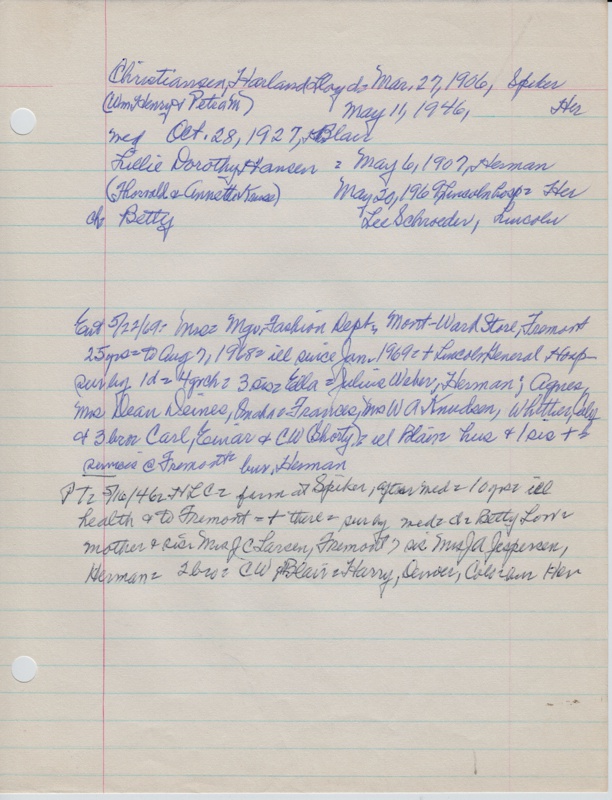 Christiansen, Harland Lloyd = Mar. 27, 1906, Spiker
(Wm Henry & Petra M) May 11, 1946, Her
med Oct. 28, 1927, Blair
Lillie Dorothy Hansen = May 6, 1907, Herman
(Thorvald & Annette Kruse) May 20, 1969 Lincoln Hosp = Her
ch Betty Lee Schroeder, Lincoln
Ent 5/22/69 = Mrs = Mgr, Fashion Dept, Mont-Ward Store, Fremont
25 yrs = to Aug 7, 1968 = ill since Jan. 1969 = + Lincoln General Hosp =
sur by 1 d = 4 grch = 3 sis = Ella = Julius Weber, Herman; Agnes,
Mrs Dean Deines, Omaha = Frances, Mrs W A Knudsen, Whittier, Calif
& 3 bro Carl, Einar & CW (Shorty) = all Blair hus & 1 sis + =
services @ Fremont = bur, Herman
P T = 5/16/46 = HLC = farm at Spiker, after med = 10 yrs = ill
health & to Fremont = + there = sur by med = d = Betty Lou =
mother & sis Mrs J C Larsen, Fremont > sis Mrs J A Jespersen,
Herman = 2 bro = CW, Blair = Harry, Denver, Colo = bur Her